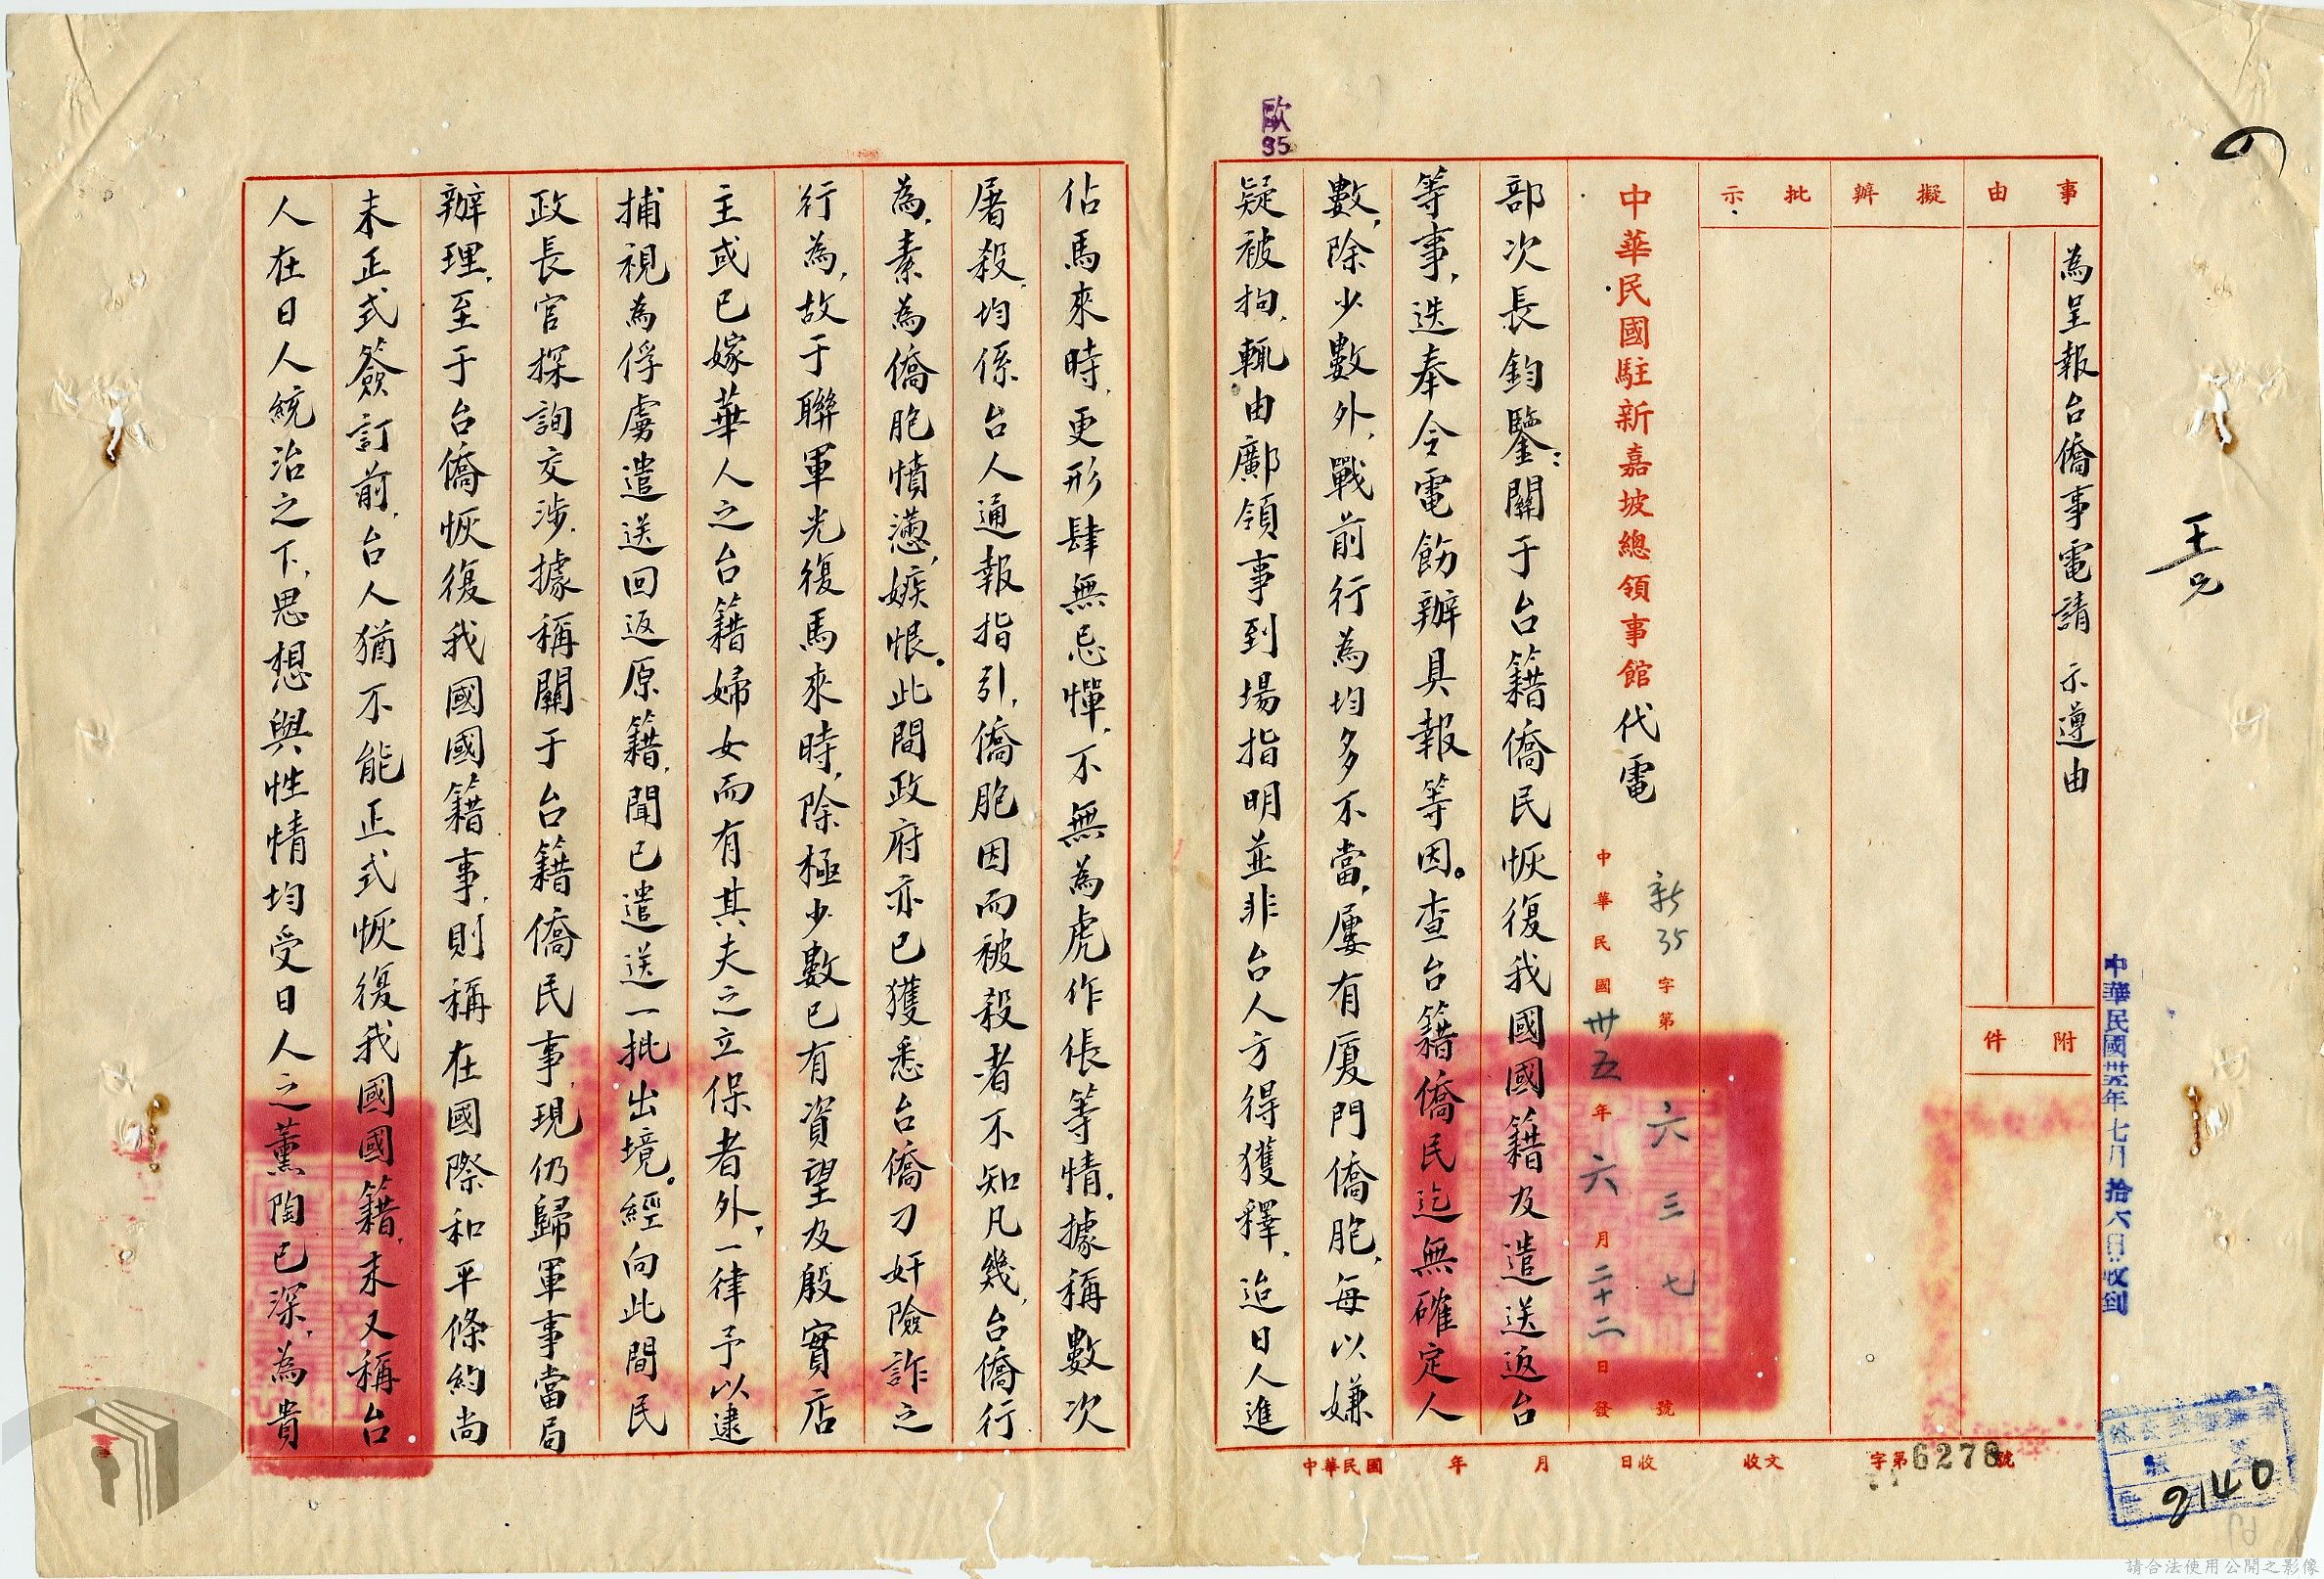 事由
為呈報台僑事電請 示遵由
附件
擬辦
批示
中華民國駐新嘉坡總領事館代電
新35字第六三七號
中華民國卅五年六月二十二日發
部次長鈞鑒:關于台籍僑民恢復我國國籍及遣送返台
等事,迭奉令電飭辦具報等因。查台籍僑民迄無確定人
數,除少數外,戰前行為均多不當,屢有厦門僑胞,每以嫌
疑被拘,輒由鄺領事到場指明並非台人方得獲釋,迨日人進
佔馬來時,更形肆無忌憚,不無為虎作倀等情。據稱數次
屠殺,均係台人通報指引,僑胞因而被殺者不知凡幾,台僑行
為,素為僑胞憤懣,嫉恨。此間政府亦已獲悉台僑刁奸險詐之
行為,故于聯軍光復馬來時,除極少數已有資望及殷實店
主或已嫁華人之台籍婦女而有其夫之立保者外,一律予以逮
捕視為俘虜遣送回返原籍,聞已遣送一批出境。經向此間民
政長官探詢交涉,據稱關于台籍僑民事,現仍歸軍事當局
辦理,至于台僑恢復我國國籍事,則稱在國際和平條約尚
未正式簽訂前,台人猶不能正式恢復我國國籍,末又稱台
人在日人統治之下,思想與性情均受日人之薰陶已深,為貴
中華民國 年 月 日收 收文 字第6278號
中華民國卅五年七月拾六日收到
歐
35
2140
請合法使用公開之影像